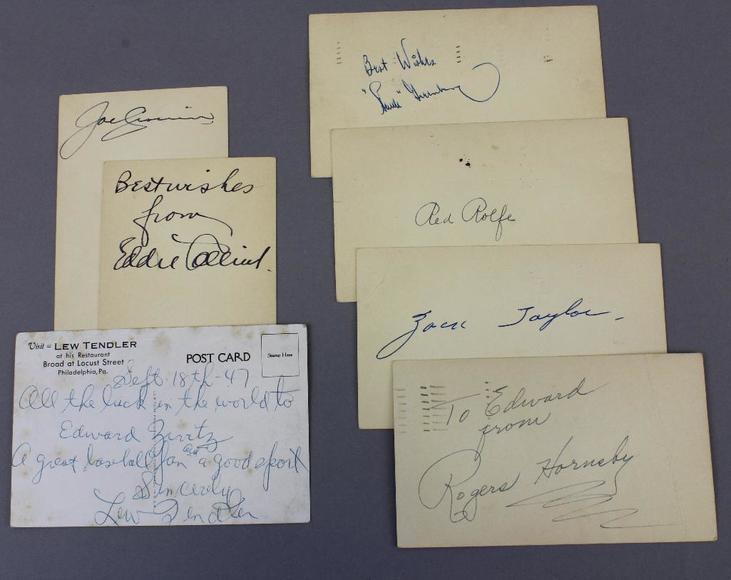 Joe Cronin
Best wishes
from
Eddie Collins.
Visit - LEW TENDLER
at his Restaurant
Broad at Locust Street
Philadelphia, Pa.
POST CARD
Stamp Here
Sept 18th-47
All the luck in the world to
Edward
A great baseball fan and a good sport
Sincerely
Lew Tendler
Best Wishes
"Hank" Greenberg
Red Rolfe
Zack Taylor
To Edward
from
Rogers Hornsby